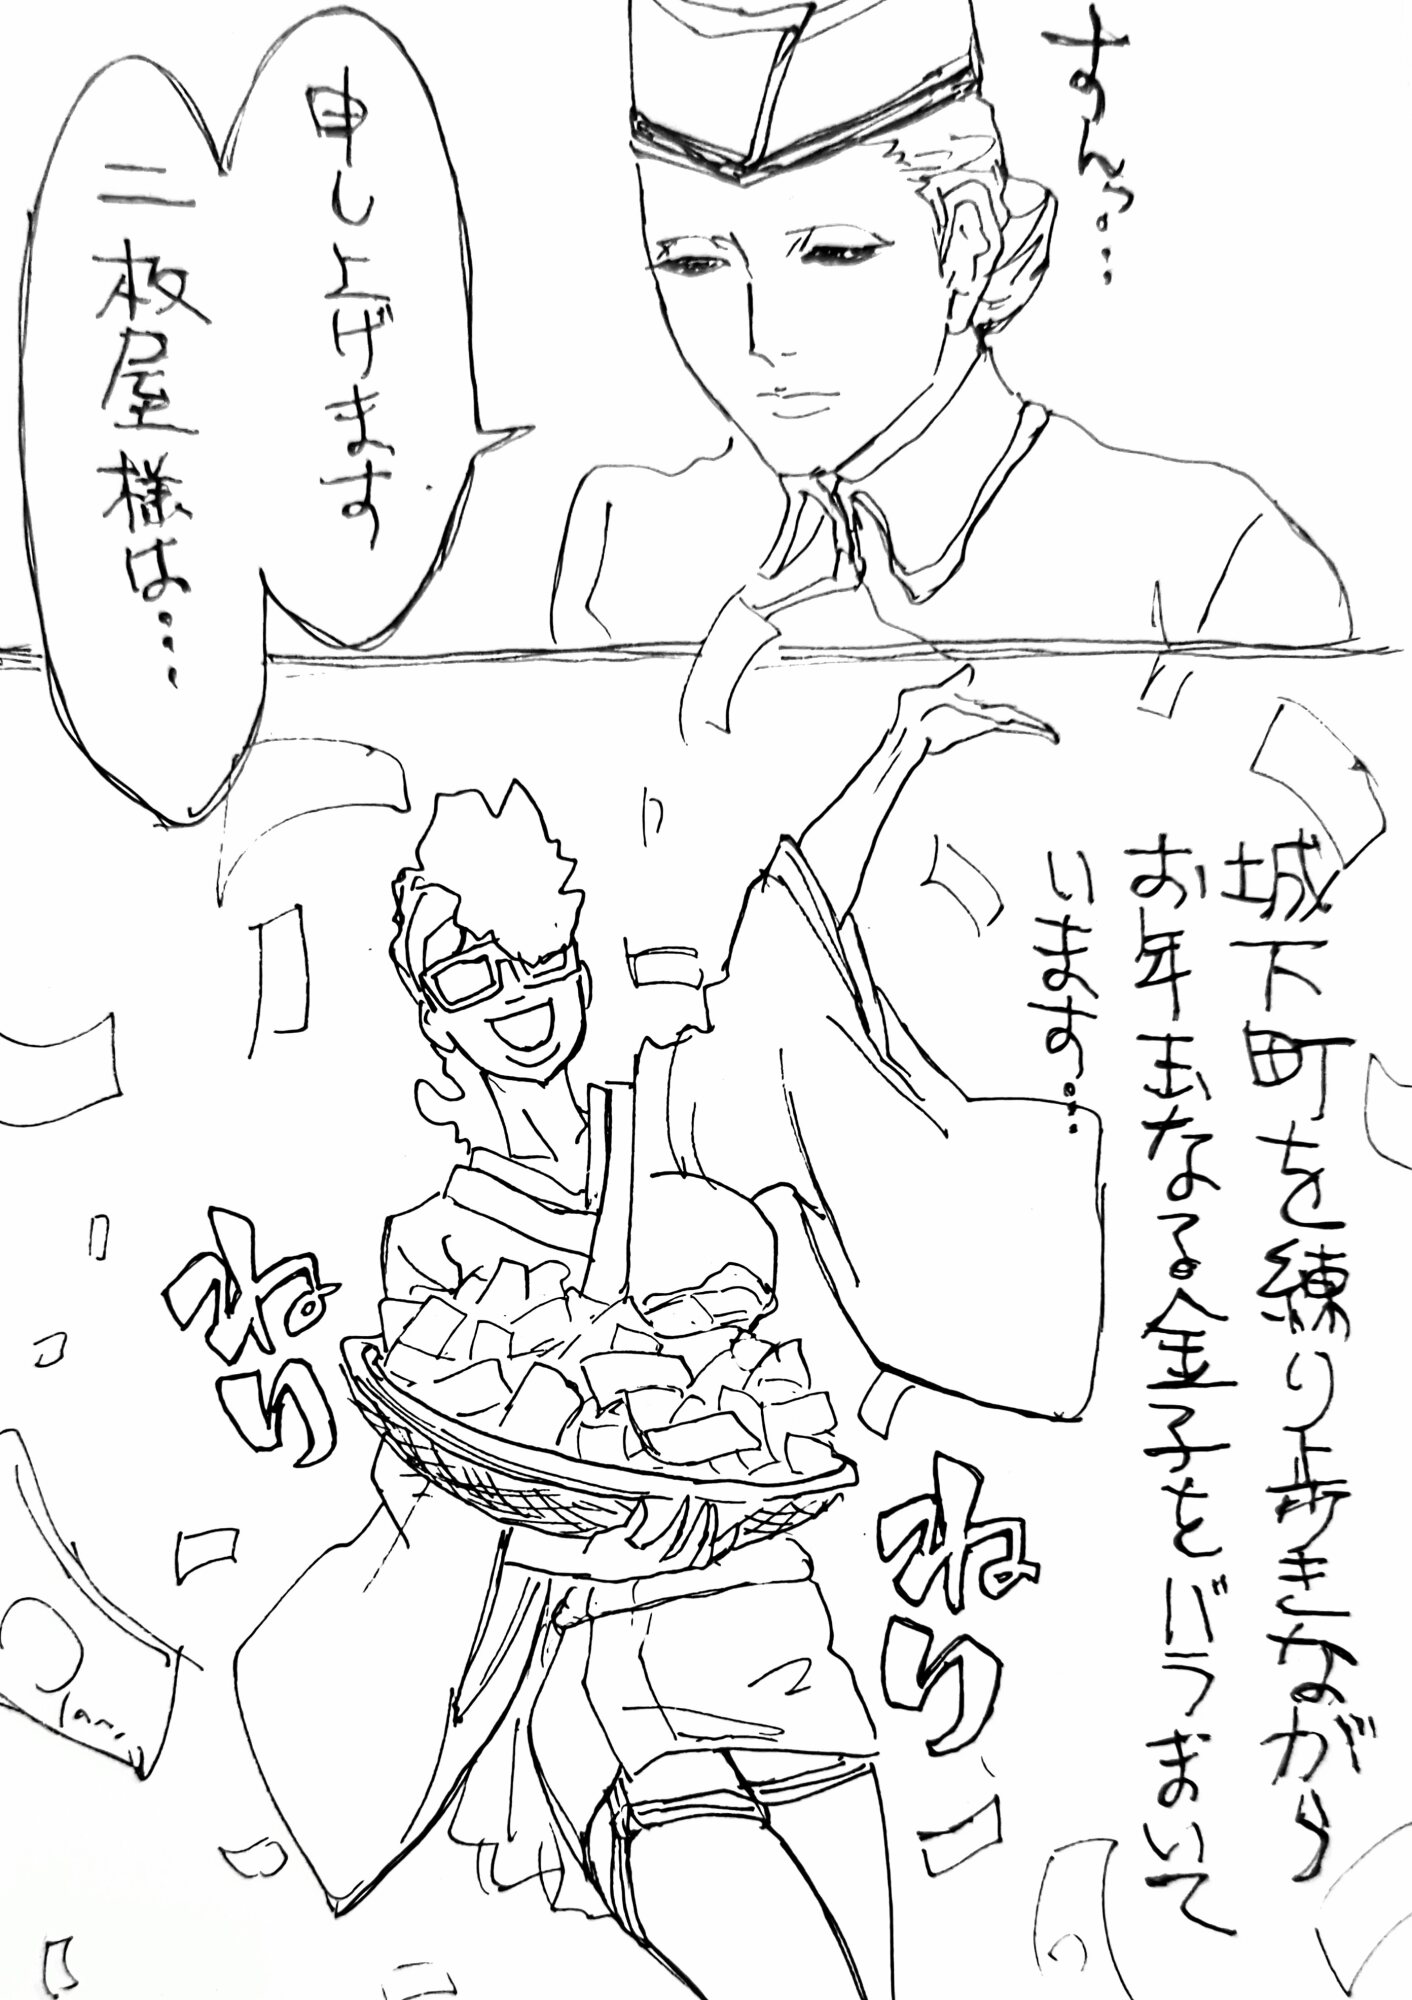 すんっ…
申し上げます
二枚屋様は…
城下町を練り歩きながら
お年玉なる金子をバラまいて
います…
ねり
ねり